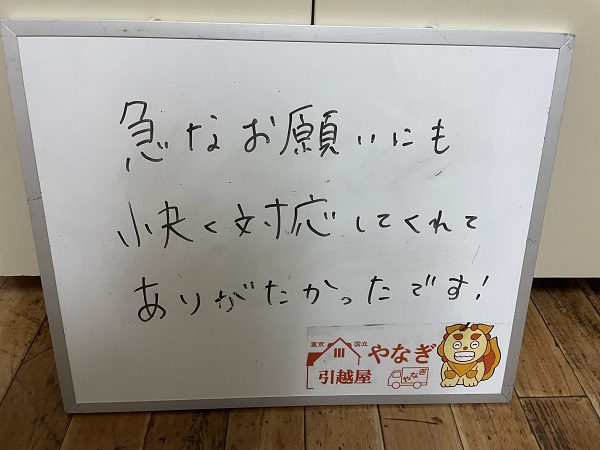 急なお願いにも
快く対応してくれて
ありがたかったです!
東京 国立 やなぎ
引越屋 やなぎ